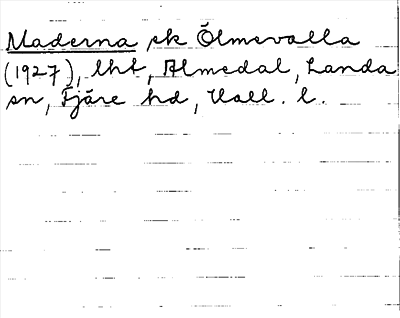 Maderna sk Ölmevalla
(1927), lht, Almedal, Landa
sn, Fjäre hd, Hall. l.